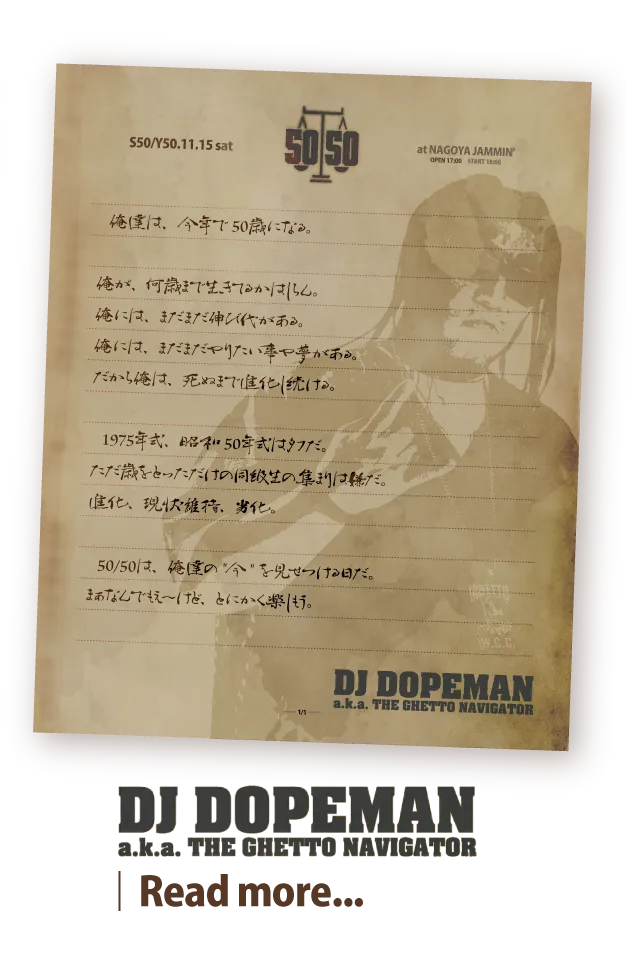 S50/Y50.11.15 sat
50 50
at NAGOYA JAMMIN'
OPEN 17:00 START 18:00
俺達は、今年で50歳になる。
俺が、何歳まで生きてるかはしらん。
俺には、まだまだ伸び代がある。
俺には、まだまだやりたい事や夢がある。
だから俺は、死ぬまで進化し続ける。
1975年式、昭和50年式はタフだ。
ただ歳をとっただけの同級生の集まりは嫌だ。
進化、現状維持、劣化。
50/50は、俺達の"今"を見せつける日だ。
まぁなんでもえ〜けど、とにかく楽しもう。
DJ DOPEMAN
a.k.a. THE GHETTO NAVIGATOR
1/1
DJ DOPEMAN
a.k.a. THE GHETTO NAVIGATOR
Read more...